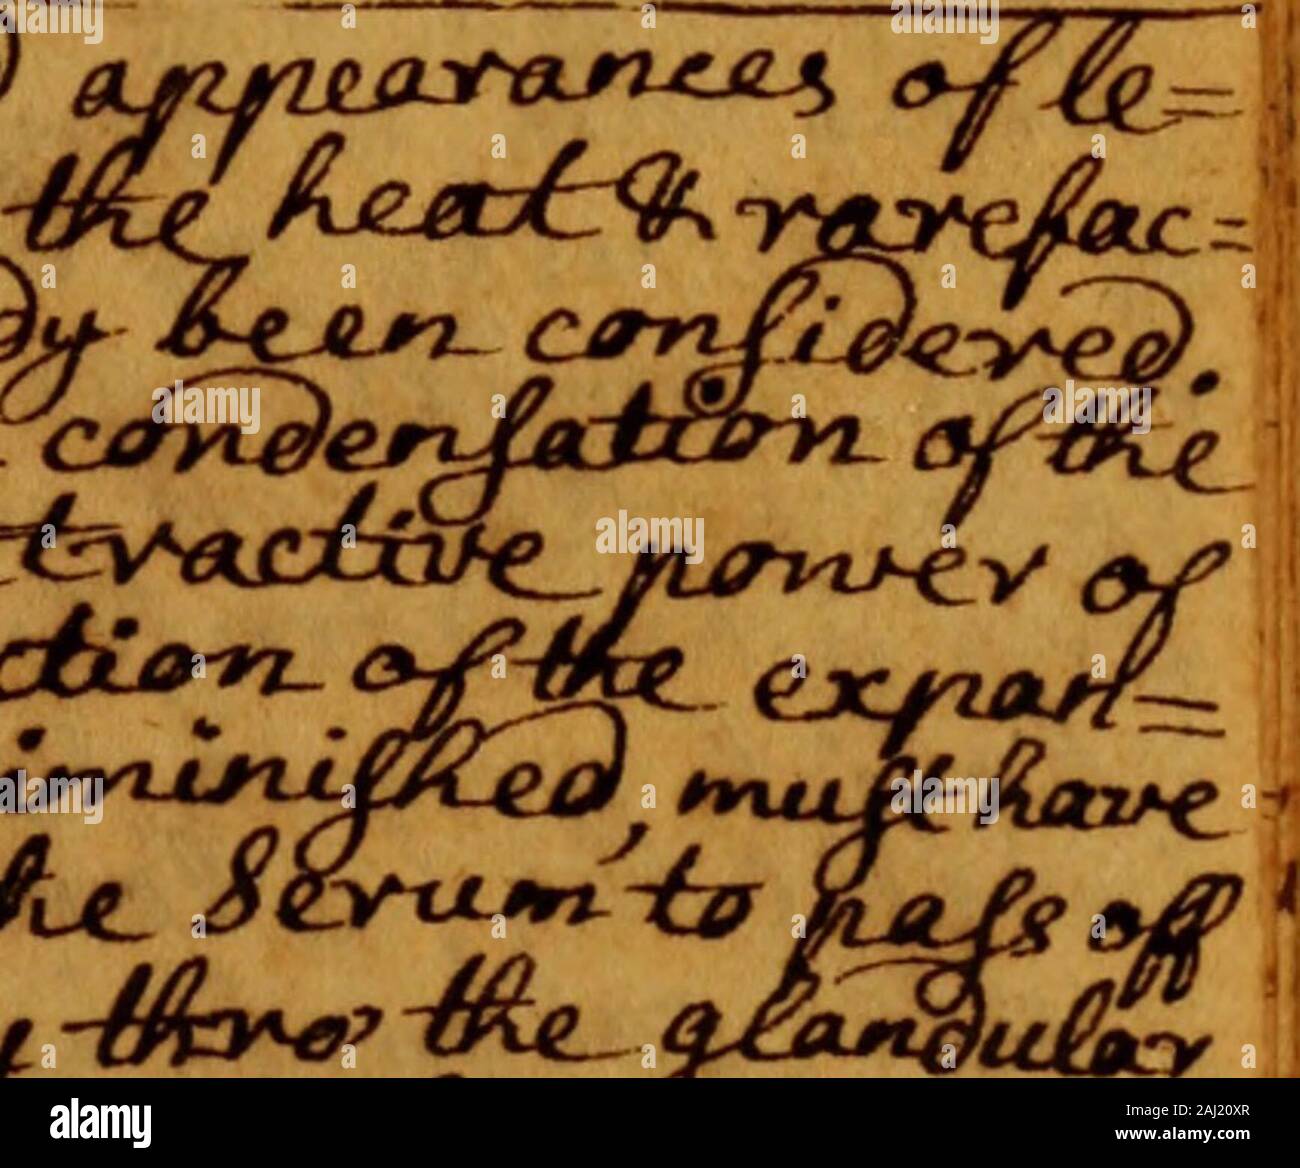 appearances of le=
the heat & rarefac=
dy been conſidered.
condenſation of the
tractive power of
ction of the expan=
iminiſhed, muſt have
he Serum to paſs off
y thro' the glandular
alamy
Image ID: 2AJ20XR
www.alamy.com